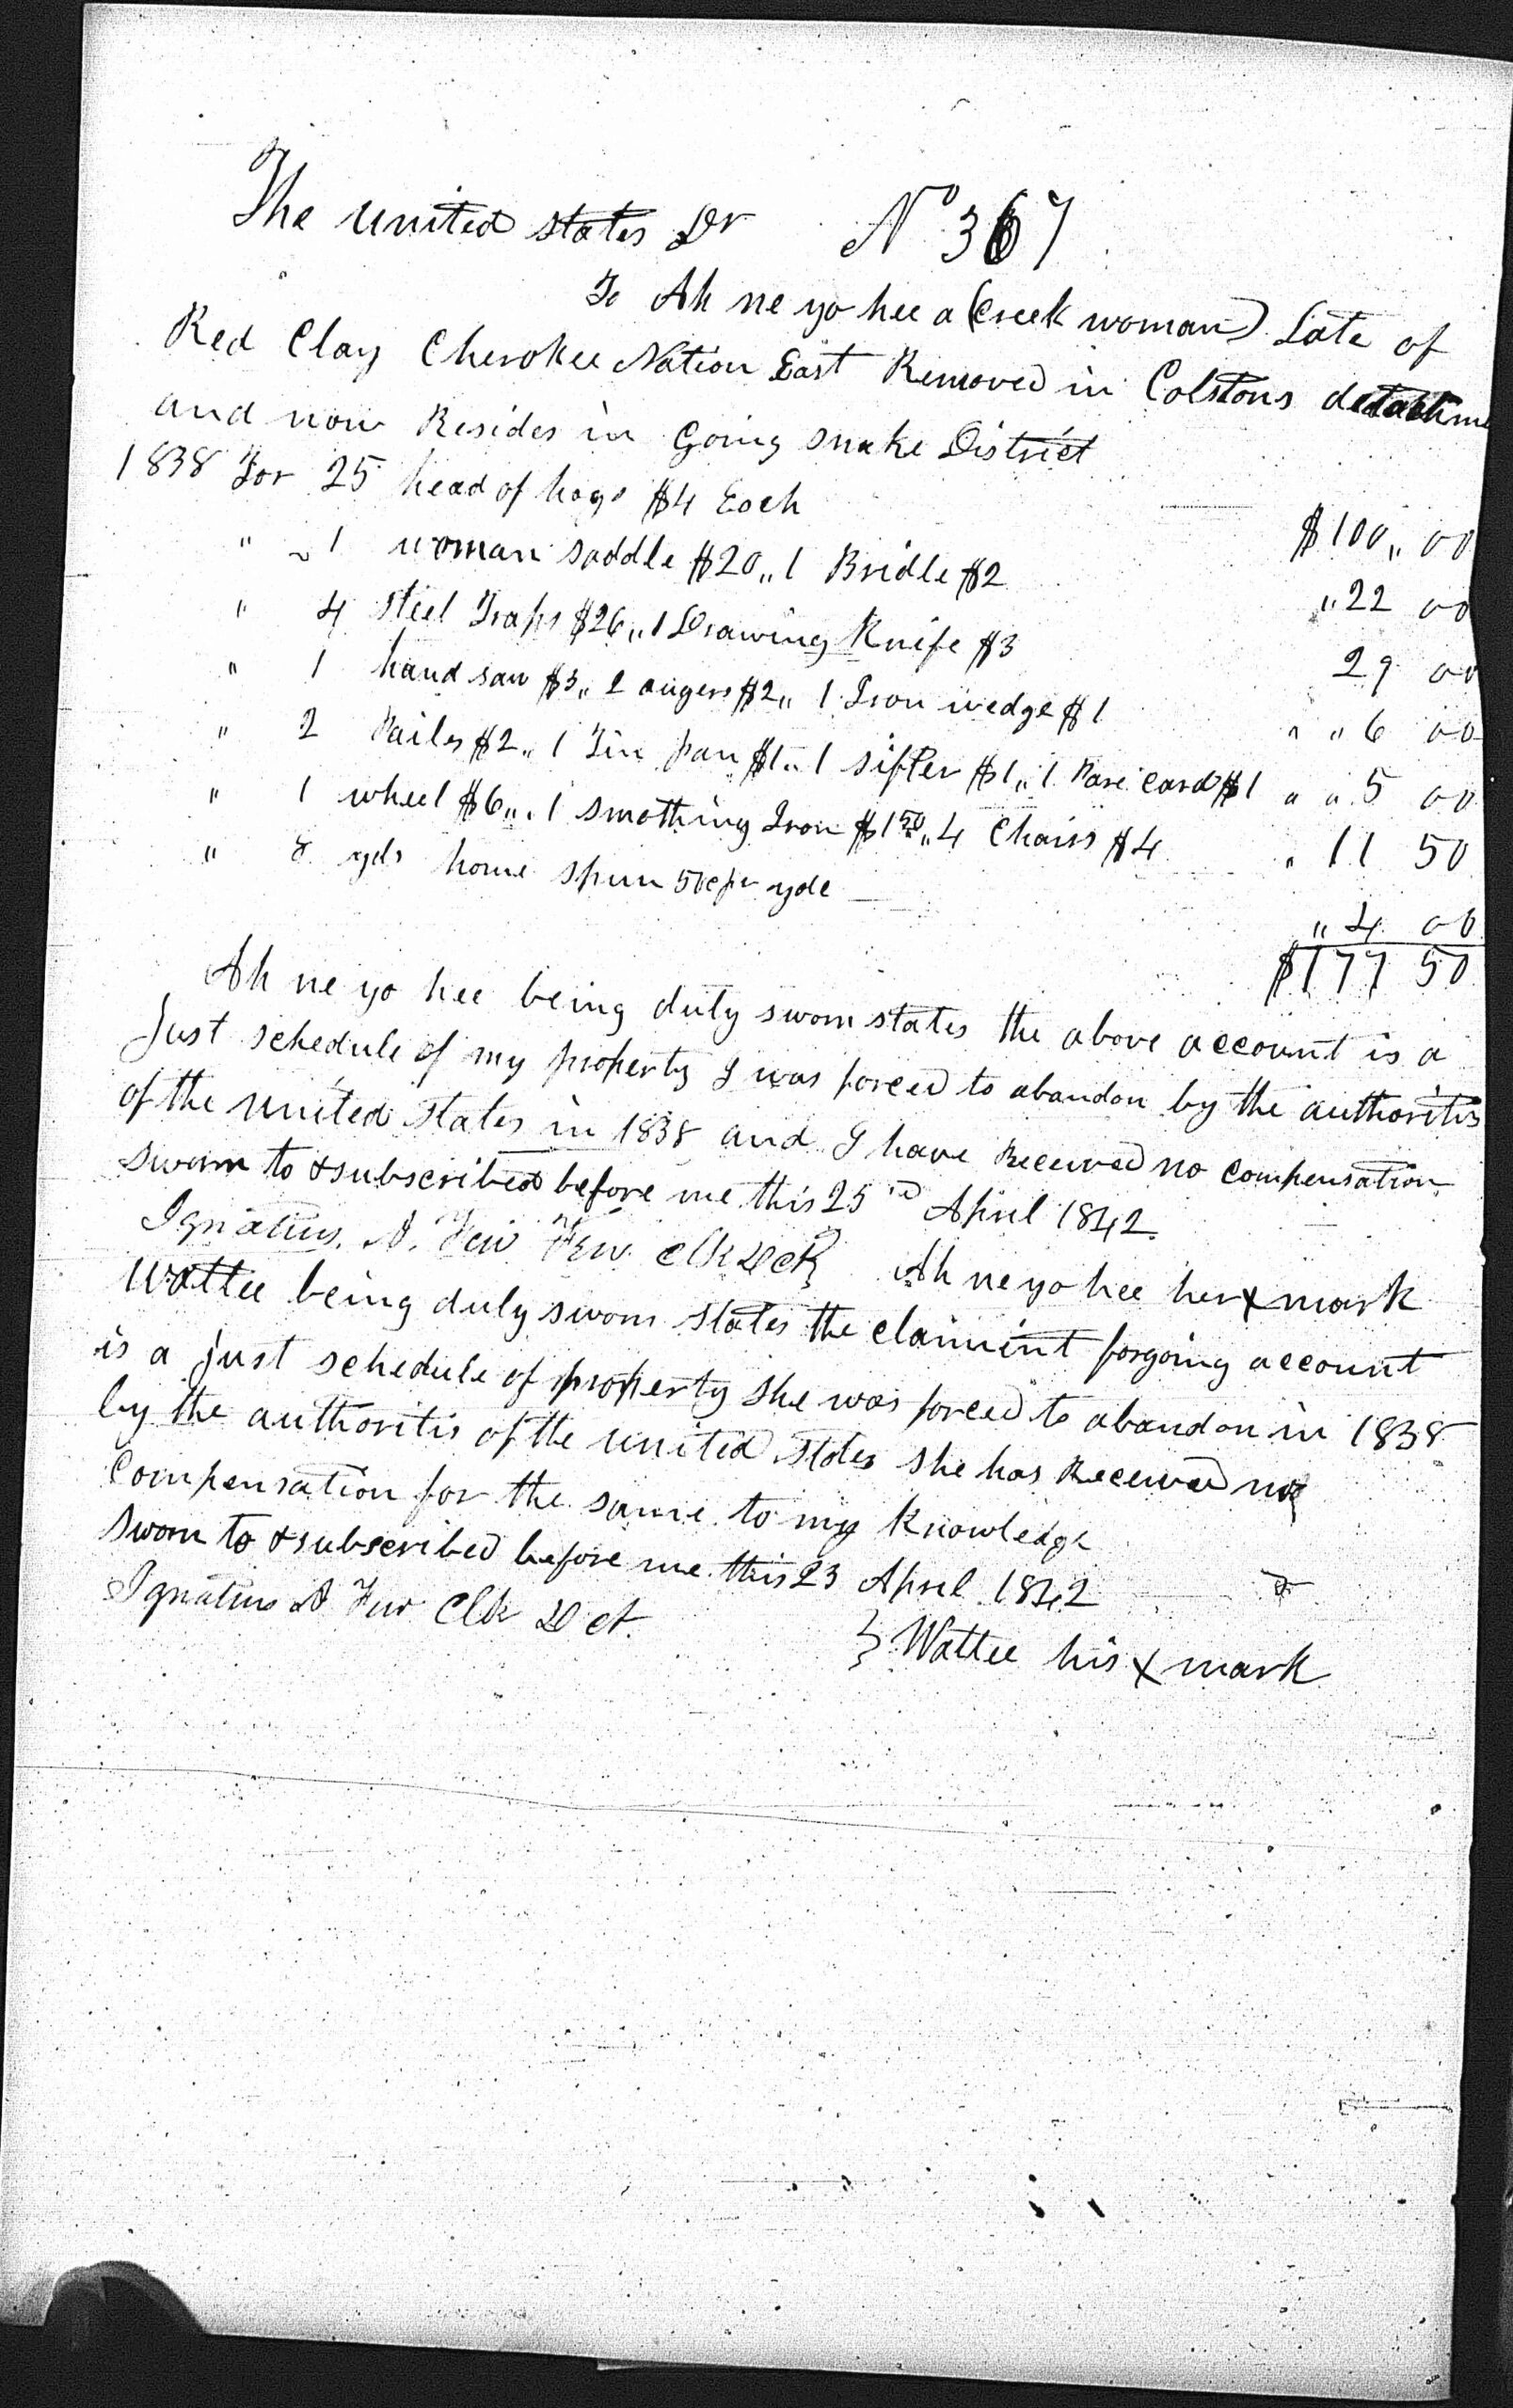 The united states Dr No 367
To Ah ne yo hee a (Creek woman) Late of
Red Clay Cherokee Nation East Removed in Colstons
and now Resides in Going snake District
1838 For 25 head of hogs $4 Each $100,, 00
" 1 woman saddle $20,, 1 Bridle $2 " 22 00
" 4 steel Traps $26,, 1 Drawing Knife $3 29 00
" 1 hand saw $3,, 2 augers $2,, 1 Iron wedge $1 " " 6 00
" 2 Pails $2,, 1 Tin pan $1,, 1 sifter $1,, 1 card $1 " " 5 00
" 1 wheel $6,, 1 smothing Iron $1 50,, 4 Chairs $4 " 11 50
" 8 yds home spun 50c pr yde " 4 00
$177 50
Ah ne yo hee being duly sworn states the above account is a
Just schedule of my property I was forced to abandon by the authoritis
of the united states in 1838 and I have Received no compensation
sworn to & subscribed before me this April 1842
Ignatius A. Few Clk
Ah ne yo hee her x mark
Wattee being duly sworn states the claimint forgoing account
is a just schedule of property she was forced to abandon in 1838
by the authoritis of the united states she has Received no
Compensation for the same to my Knowledge
sworn to & subscribed before me this 23 April 1842
Ignatius A Few Clk
} Wattee his x mark